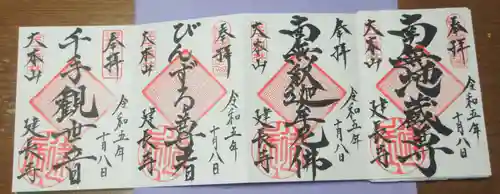 奉拝
南無地蔵尊
大本山
建長寺
令和五年
十月八日
奉拝
南無釈迦牟尼佛
大本山
建長寺
令和五年
十月八日
奉拝
びんずる尊者
大本山
建長寺
令和五年
十月八日
奉拝
千手観世音
大本山
建長寺
令和五年
十月八日